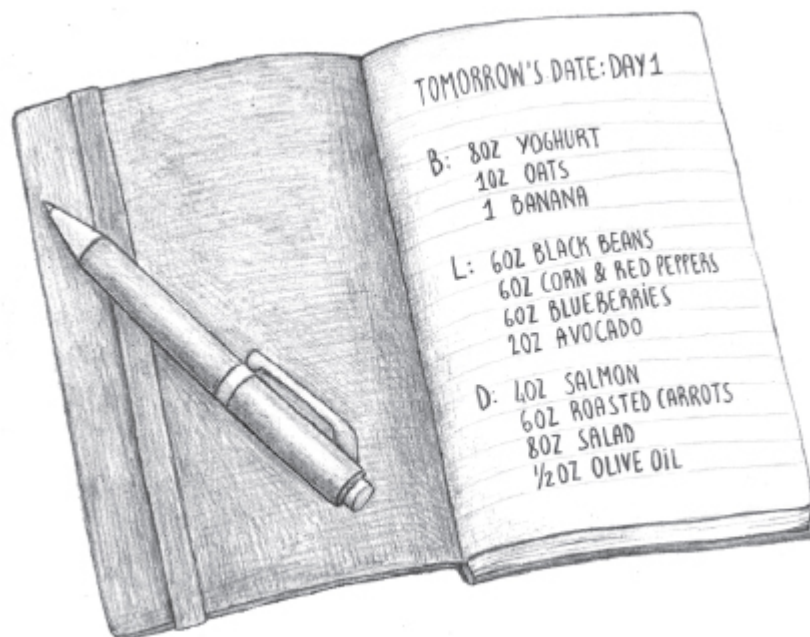 TOMORROW'S DATE: DAY 1
B: 8OZ YOGHURT
1OZ OATS
1 BANANA
L: 6OZ BLACK BEANS
6OZ CORN & RED PEPPERS
6OZ BLUEBERRIES
2OZ AVOCADO
D: 4OZ SALMON
6OZ ROASTED CARROTS
8OZ SALAD
½OZ OLIVE OIL